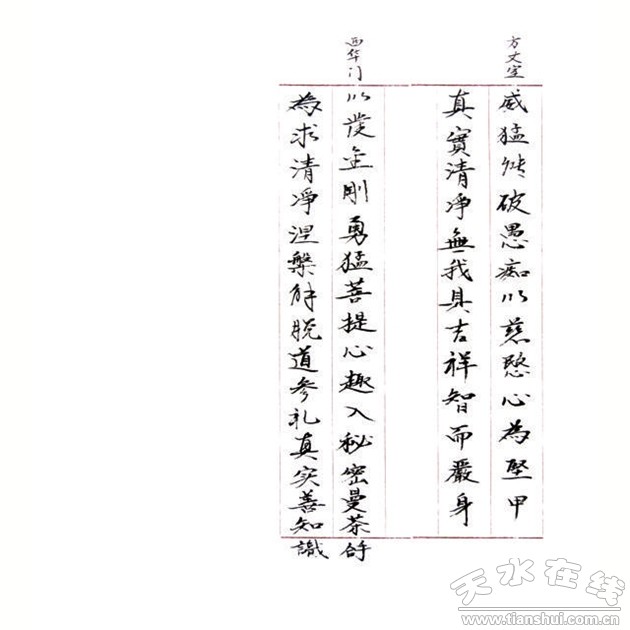 方丈室
威猛能破愚痴以慈愍心為堅甲
真實清淨無我具吉祥智而嚴身
西华门
以發金剛勇猛菩提心趣入秘密曼荼
為求清淨涅槃解脱道参礼真实善知識
天水在线
www.tianshui.com.cn